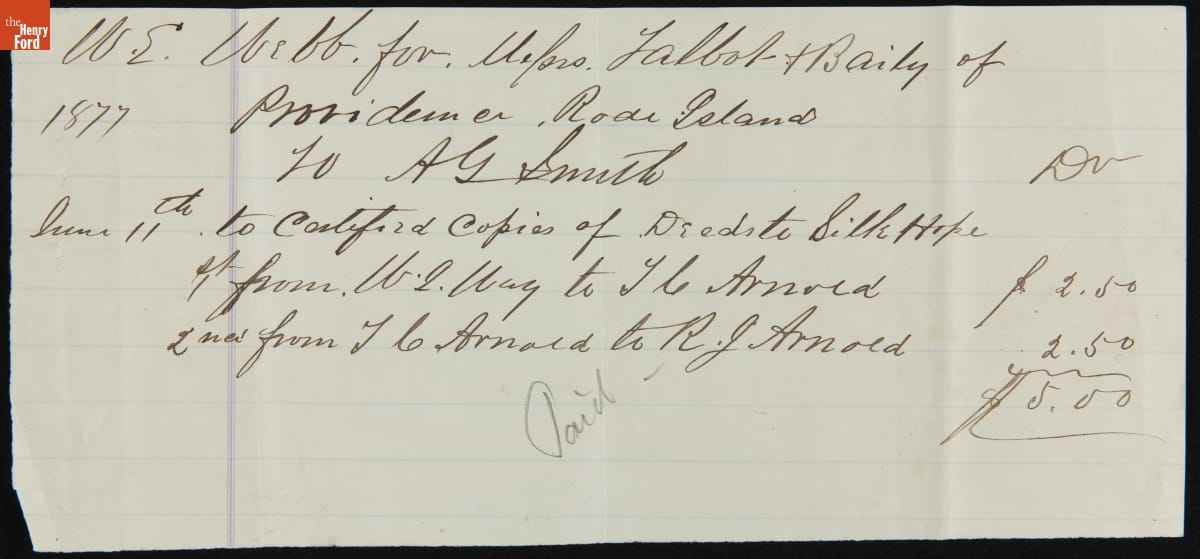 the Henry Ford
W. E. Webb. for. Messrs. Talbot + Baily of
1877 Providence, Rode Island
To A G Smith Dr
June 11th to Certified Copies of Deeds to Silk Hope
1st from W. J. Way to T C Arnold $ 2.50
2nd from T C Arnold to R. J Arnold 2.50
$ 5.00
Paid